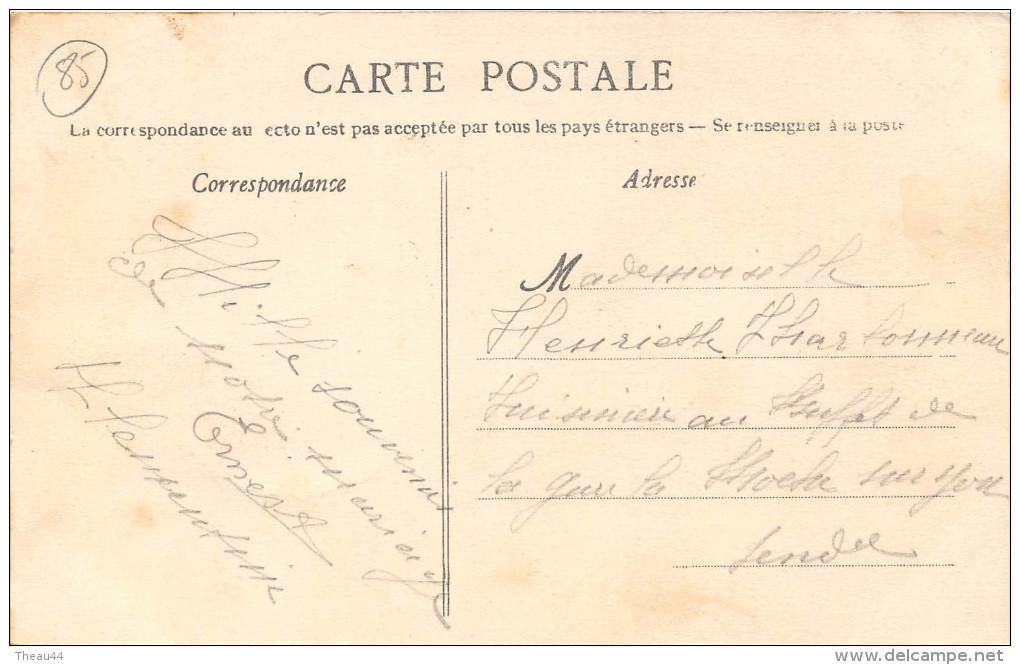 85
CARTE POSTALE
La correspondance au ecto n'est pas acceptée par tous les pays étrangers — Se renseigner à la poste
Correspondance
Adresse
Mille souvenirs
de notre mariage
Ernest
Clementine
Mademoiselle
Henriette Charbonneau
Cuisinière au Buffet de
la gare la Roche sur Yon
Vendée
Theau44
www.delcampe.net